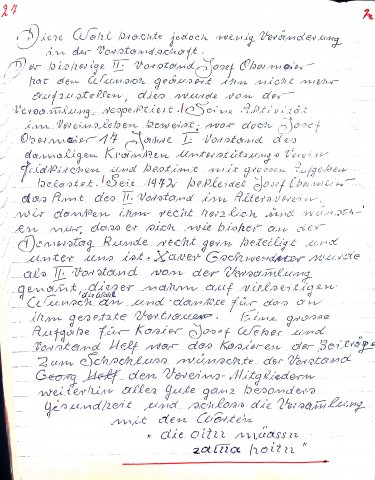 27
Diese Wahl brachte jedoch wenig Veränderung
in der Vorstandschaft.
Der bisherige II. Vorstand Josef Obermaier
hat den Wunsch geäusert ihn nicht mehr
aufzustellen, dies wurde von der
Versamlung respektiert. Seine Aktivität
im Vereinsleben beweist, war doch Josef
Obermaier 17 Jahre I. Vorstand des
damaligen Kranken unterstützungs Verein
Feldkirchen und bestimt mit grossen Aufgaben
belastet. Seit 1972 bekleidet Josef Obermaier
das Amt des II. Vorstand im Altersverein,
wir danken ihm recht herzlich und wünsch-
en nur, dass er sich wie bisher an der
Donerstag Runde recht gern beteiligt und
unter uns ist. Xaver Gschwendner wurde
als II. Vorstand von der Versamlung
genant, dieser nahm auf vielseitigen
Wunsch die Wahl an und dankte für das an
ihm gesetzte Vertrauen. Eine grosse
Aufgabe für Kasier Josef Weher und
Vorstand Helf war das Kasieren der Beiträge
Zum Schschluss wünschte der Vorstand
Georg Helf den Vereins-Mitgliedern
weiterhin alles Gute ganz besonders
Gesundheit und schloss die Versamlung
mit den Worten
" die oitn müassn
zama hoitn "